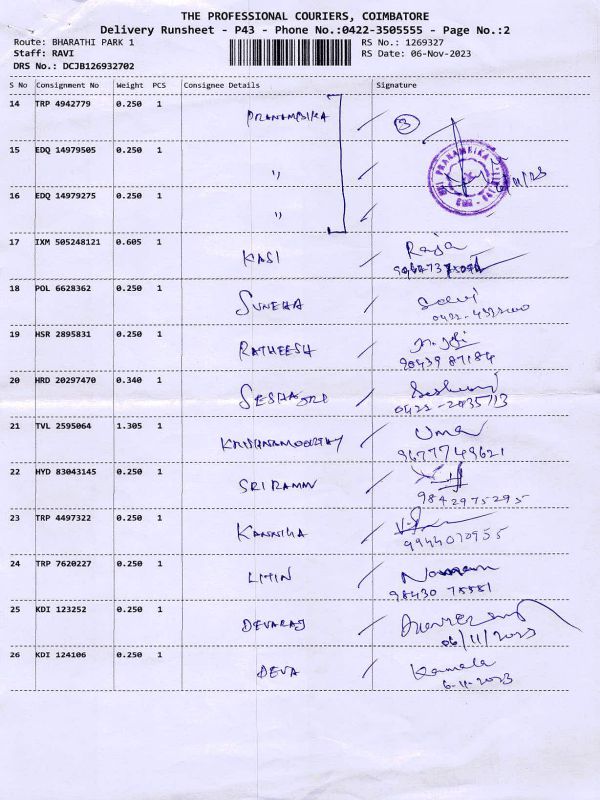 THE PROFESSIONAL COURIERS, COIMBATORE
Delivery Runsheet - P43 - Phone No.:0422-3505555 - Page No.:2
Route: BHARATHI PARK 1 RS No.: 1269327
Staff: RAVI RS Date: 06-Nov-2023
DRS No.: DCJB126932702
S No Consignment No Weight PCS Consignee Details Signature
14 TRP 4942779 0.250 1 PRANAMBIKA 3
15 EDQ 14979505 0.250 1 "
16 EDQ 14979275 0.250 1 "
17 IXM 505248121 0.605 1 KASI Raja
18 POL 6628362 0.250 1 SUNEHA Selvi
19 HSR 2895831 0.250 1 RATHEESH
98439 87184
20 HRD 20297470 0.340 1 SESHADRI
0422-2435713
21 TVL 2595064 1.305 1 KRISHNAMOORTHY Uma
9677749621
22 HYD 83043145 0.250 1 SRIRAMAN
9842975295
23 TRP 4497322 0.250 1 KANNIKA
9944070955
24 TRP 7620227 0.250 1 LITIN
98430 75581
25 KDI 123252 0.250 1 DEVARAJ
06/11/2023
26 KDI 124106 0.250 1 DEVA Kamala
6-11-2023